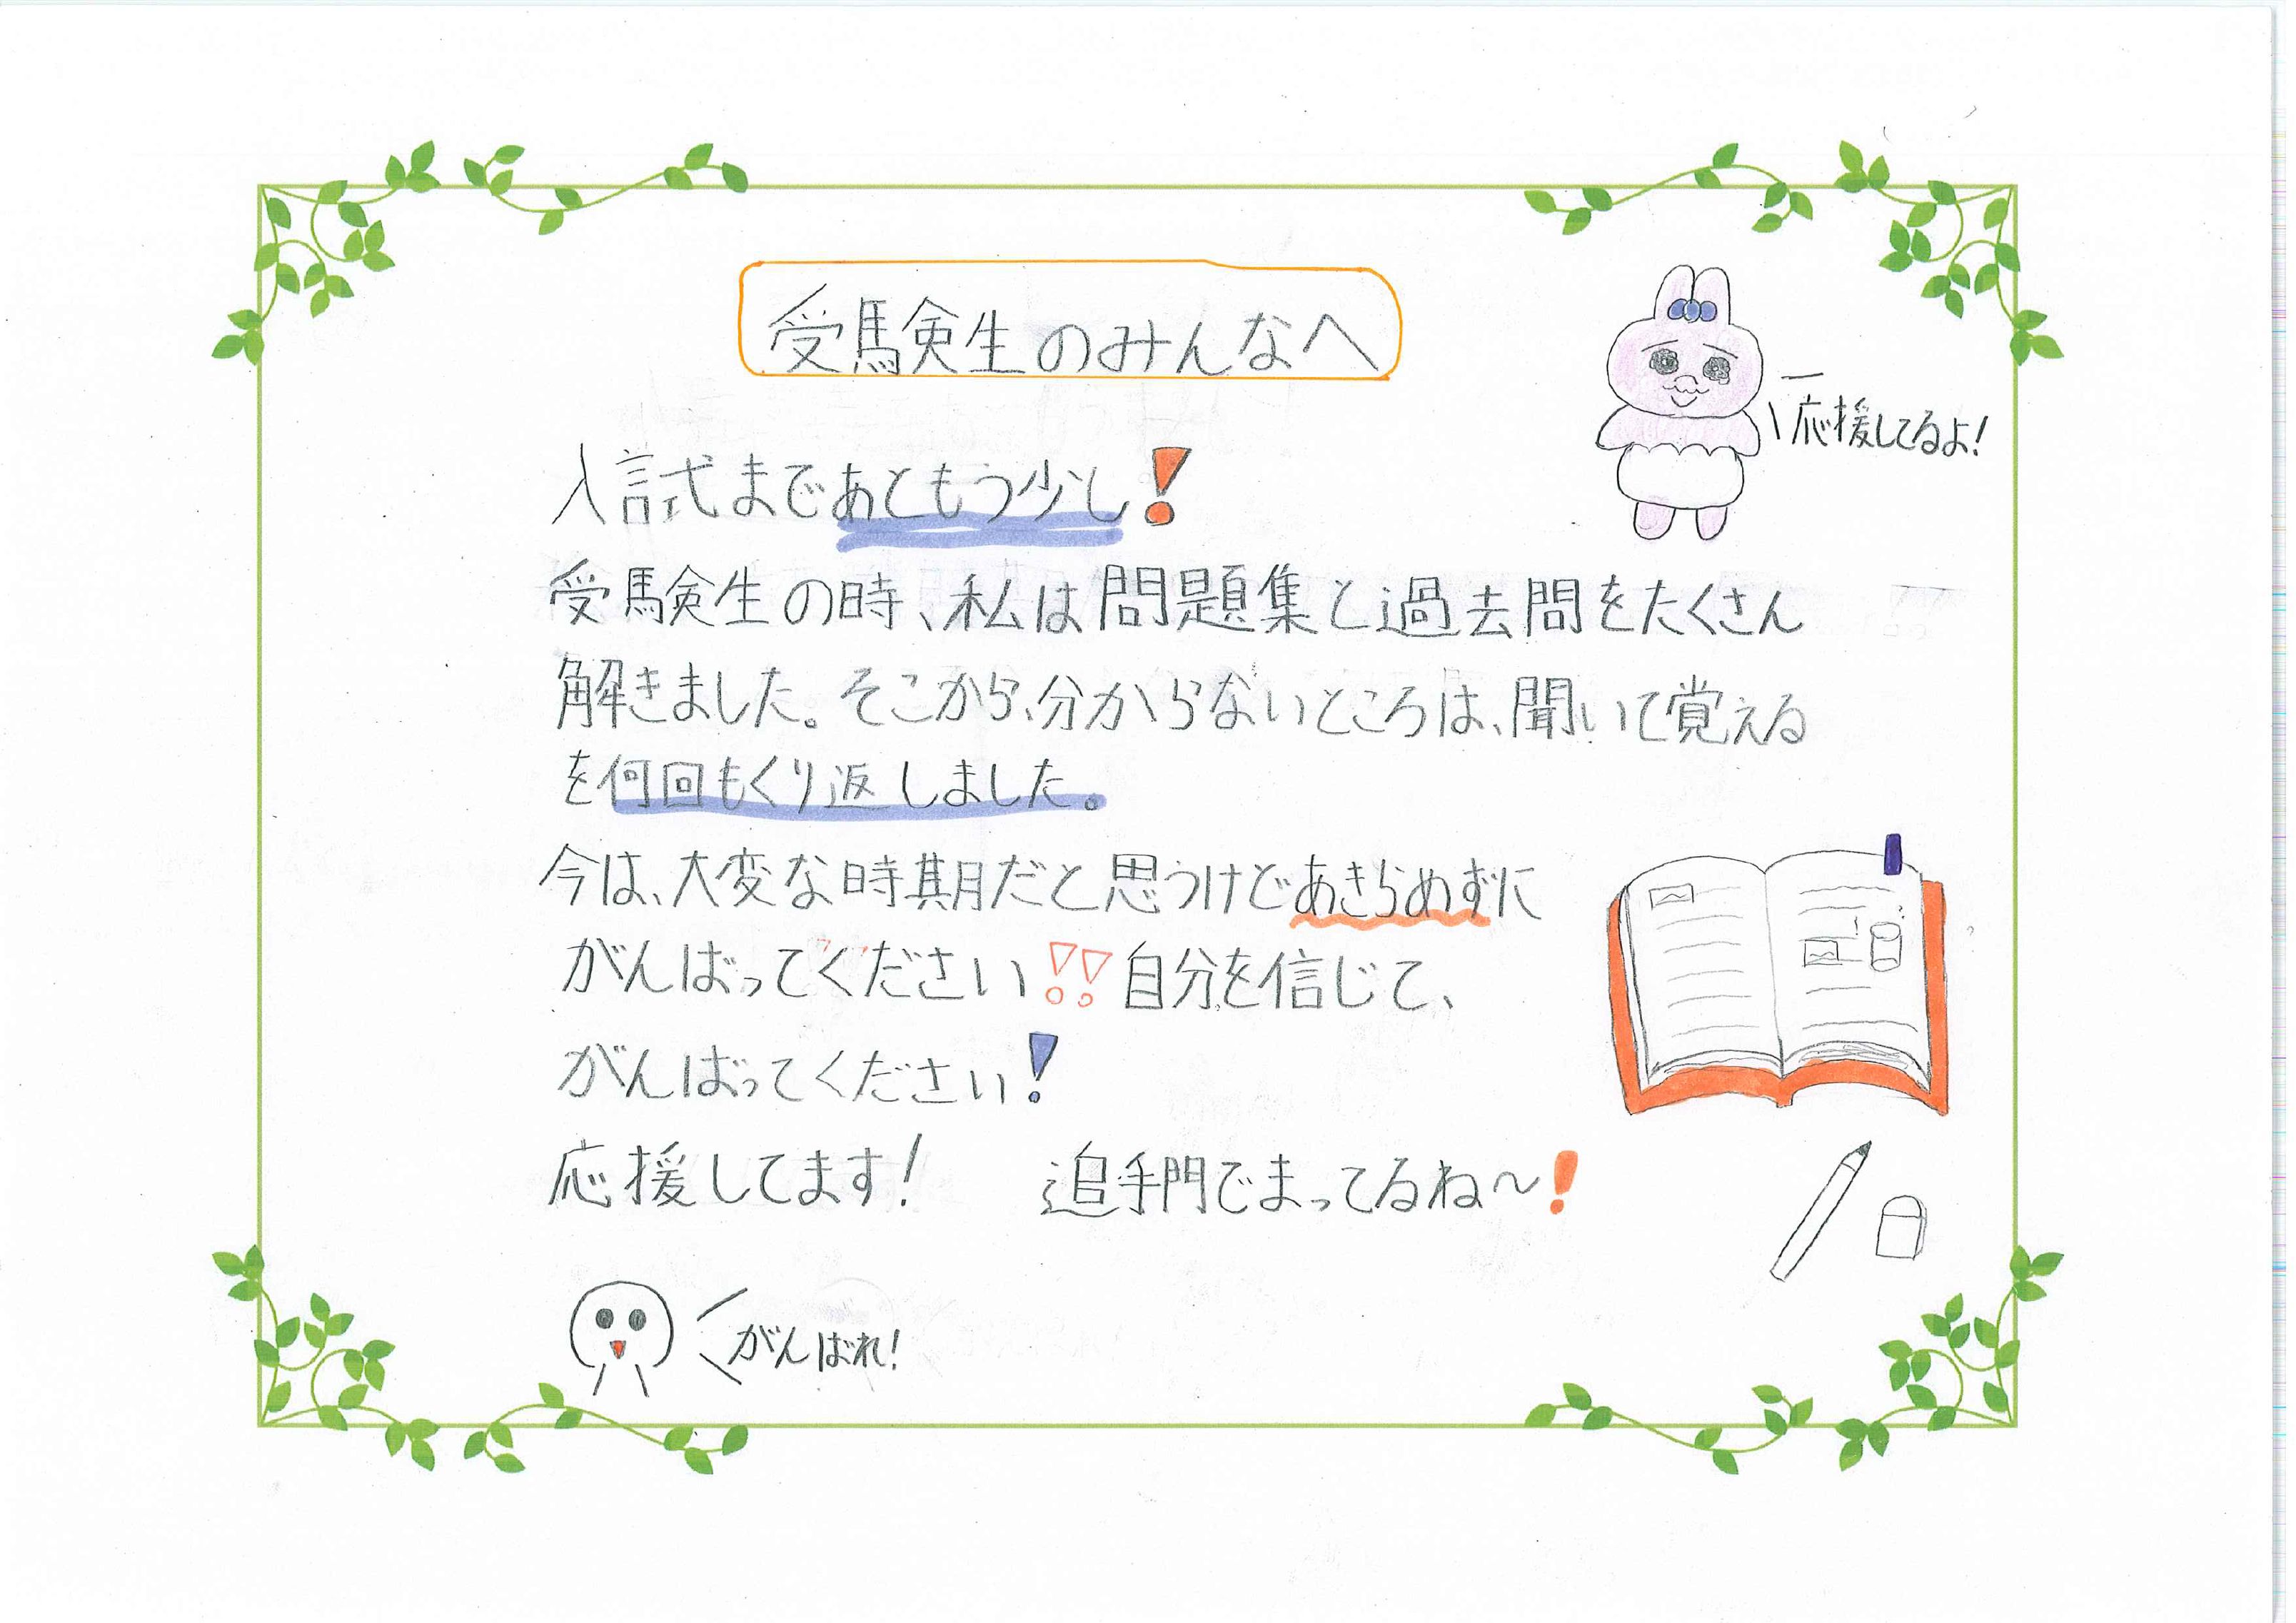 受験生のみんなへ
応援してるよ!
入試式まであともう少し!
受験生の時、私は問題集と過去問をたくさん
解きました。そこから、分からないところは、聞いて覚える
を何回もくり返しました。
今は、大変な時期だと思うけどあきらめずに
がんばってください!! 自分を信じて、
がんばってください!
応援してます! 追手門でまってるね〜!
がんばれ!